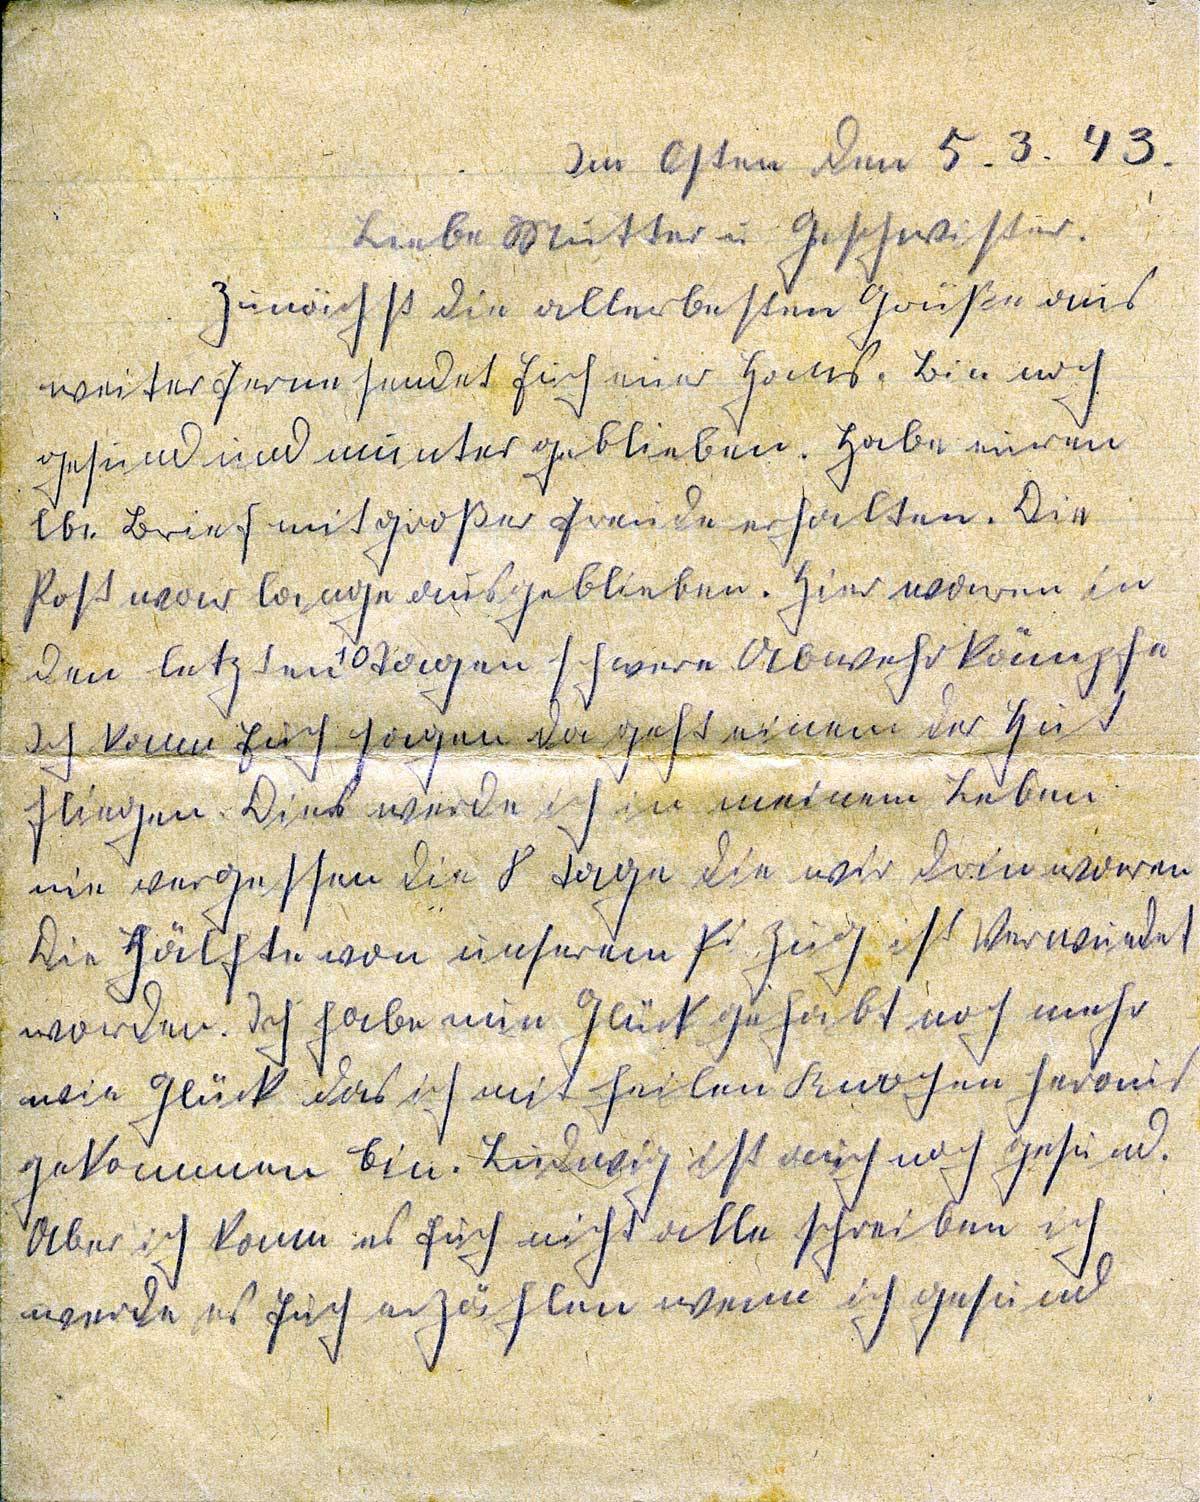 Im Osten den 5.3.43.
Liebe Mutter u Geschwister.
Zunächst die allerbesten Grüße aus
weiter ferne sendet Euch euer Hans. Bin noch
gesund und munter geblieben. Habe euren
lb. Brief mit großer freude erhalten. Die
Post war lange ausgeblieben. Hier waren in
den letzten 10 Tagen schwere Abwehrkämpfe
Ich kann Euch sagen da geht einem der Hut
fliegen. Dies werde ich in meinem Leben
nie vergessen die 8 Tage die wir drin waren
Die Hälfte von unserem Pi. Zug ist Verwundet
worden. Ich habe nun Glück gehabt noch mehr
wie Glück das ich mit heilen Knochen heraus
gekommen bin. Ludwig ist auch noch gesund.
Aber ich kann es Euch nicht alle schreiben ich
werde es Euch erzählen wenn ich gesund